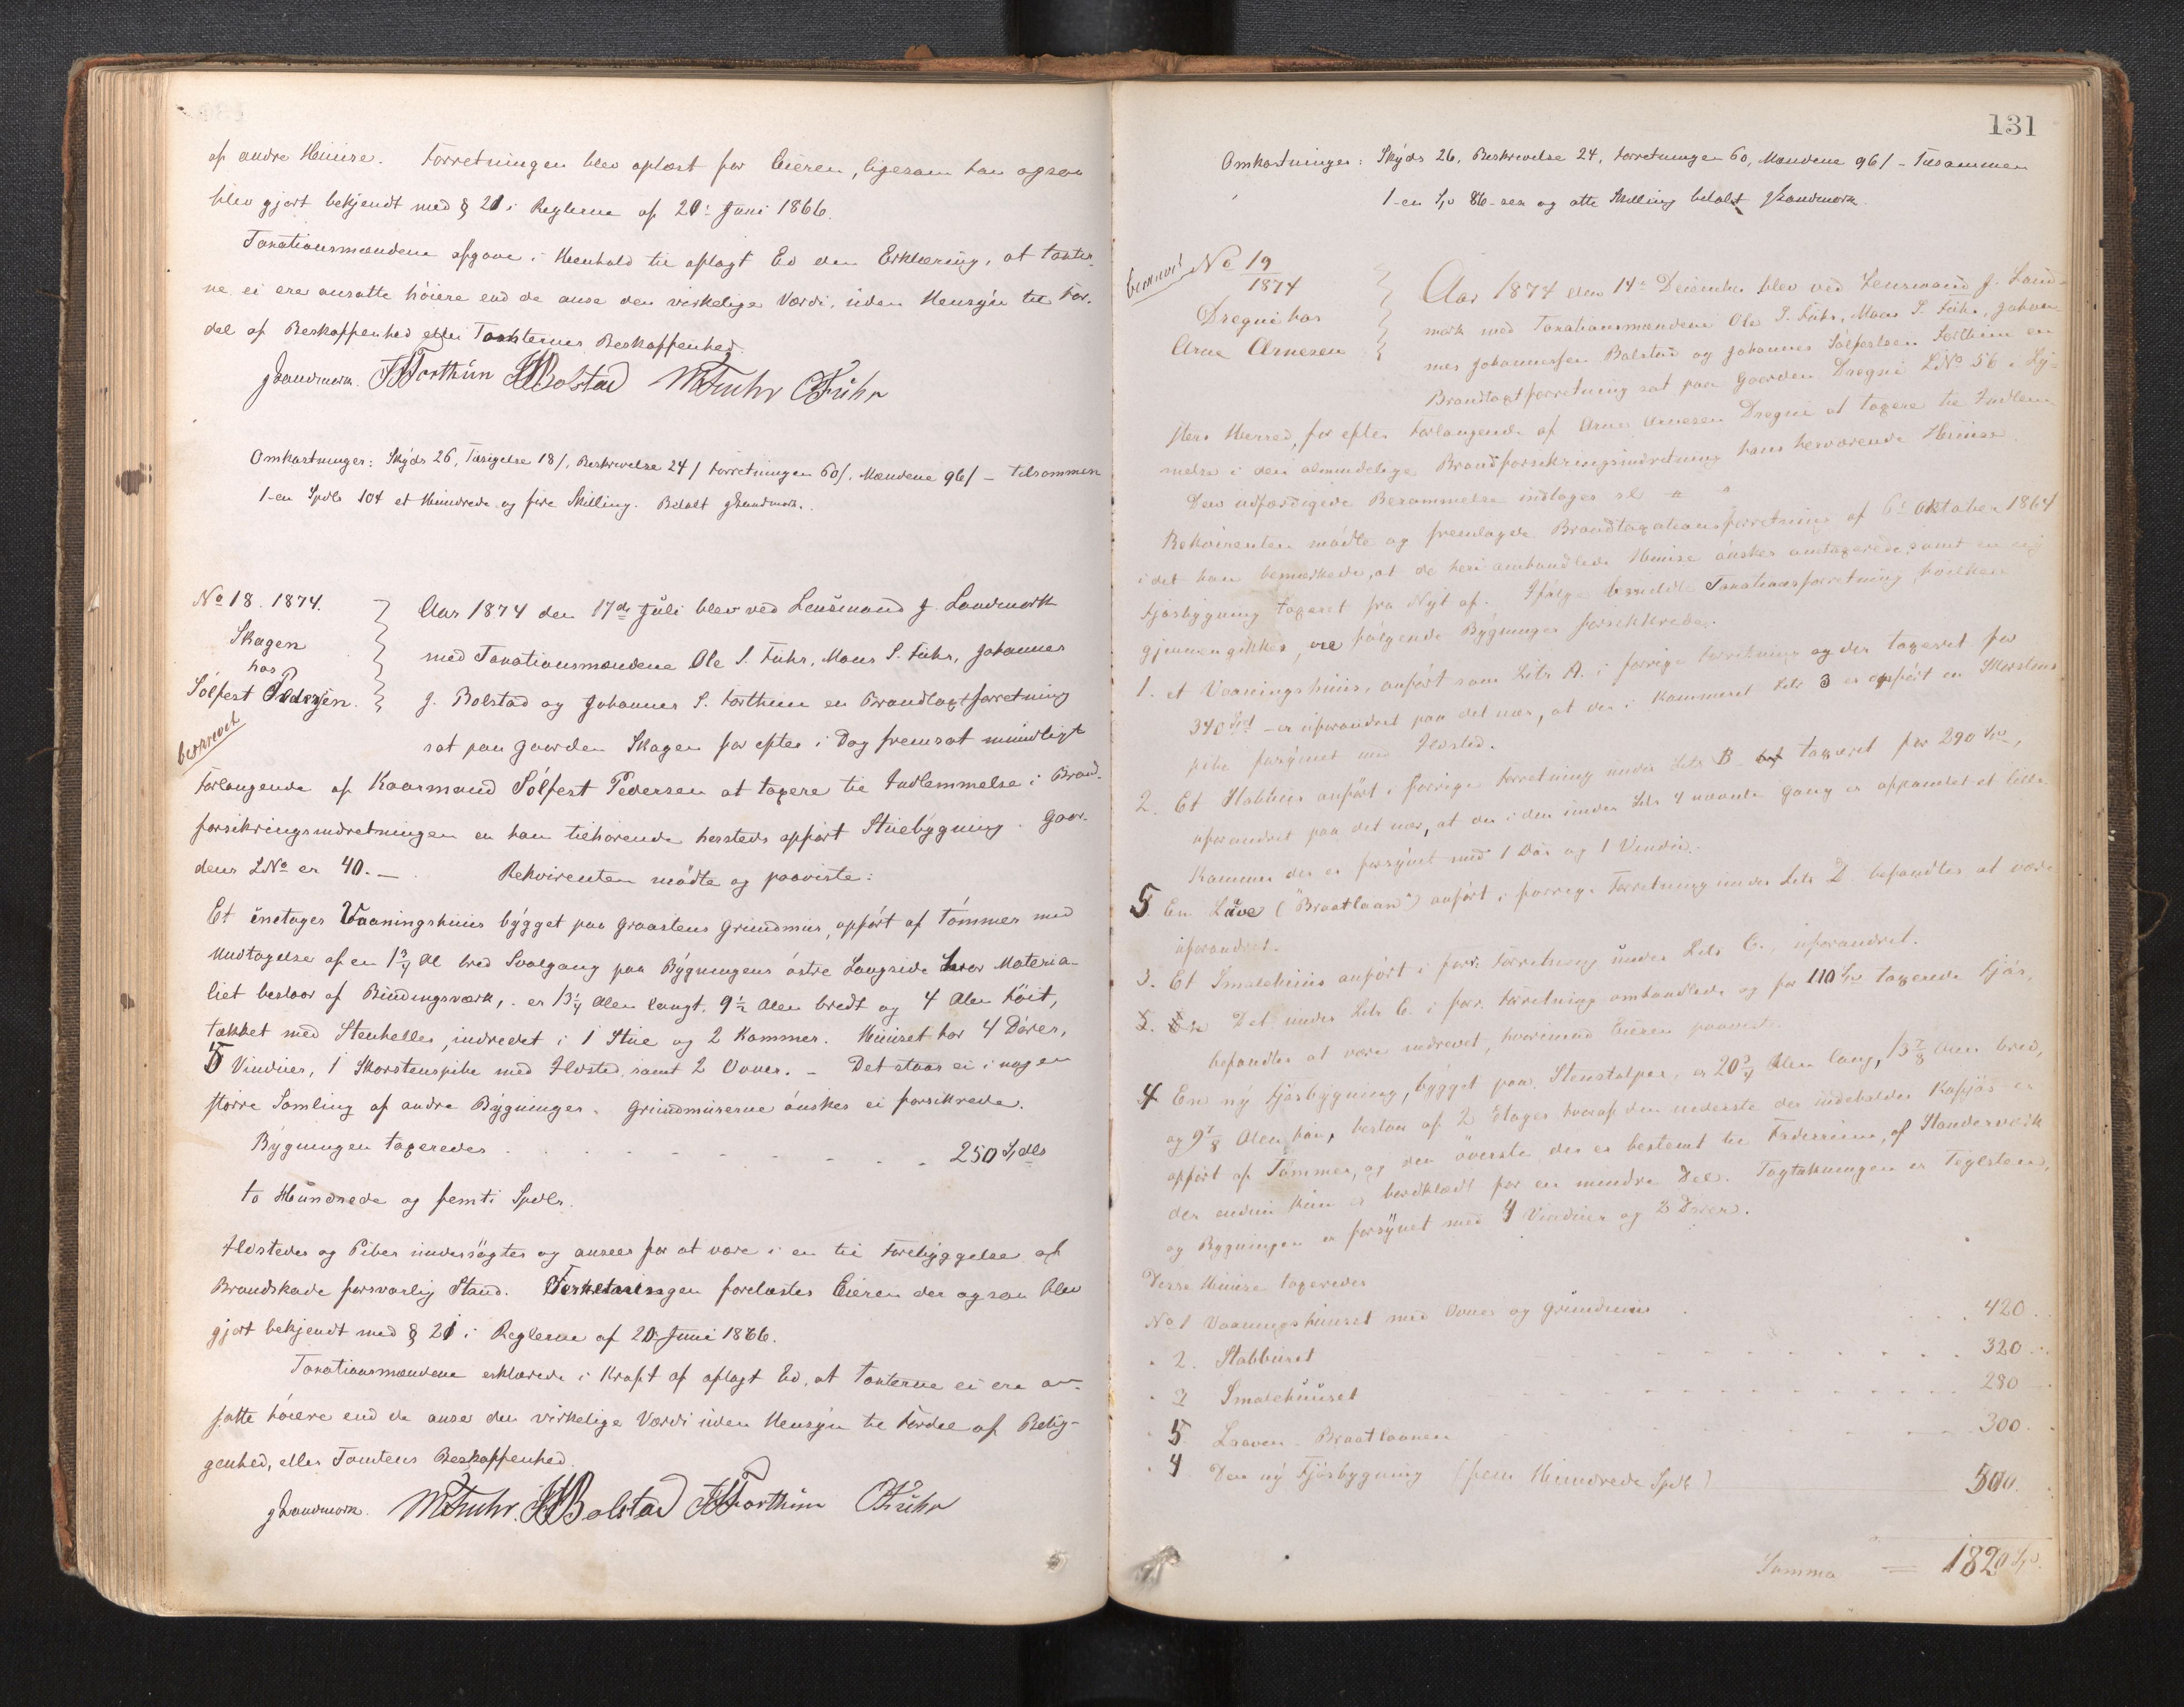 af andre Huuse. Forretningen blev oplæst for Eieren, ligesom han ogsaa
blev gjort bekjendt med § 21 i Reglerne af 21: Juni 1866.
Taxationsmændene afgave i Henhold til aflagt Ed den Erklæring, at Taxter-
ne ei ere ansatte höiere end de anse den virkelige Værdi, uden Hensÿn til For-
del af Beskaffenhed eller Tomternes Beskaffenhed.
J Landmork. JSForthün JJBolstad MSFuhr OSFühr
Omkostninger: Skÿds 26, Tilsigelse 18/, Beskrivelse 24/ Forretningen 60/. Mændene 96/ – tilsammen
1-en Spdlr 104 et Hundrede og fire Skilling. Betalt JLandmork.
No 18. 1874.
Skagen
hos
Sölfest Pedersen.
beskrevet
Aar 1874 den 17de Juli blev ved Lensmand J. Landmork
med Taxationsmændene Ole S. Fuhr, Mons S. Fuhr, Johannes
J. Bolstad og Johannes S. Forthun en Brandtaxtforretning
sat paa Gaarden Skagen for efter i Dag fremsat mundtligt
Forlangende af Kaarmand Sölfest Pedersen at taxere til Indlemmelse i Brand-
forsikringsindretningen en ham tilhörende hersteds opfört Stuebÿgning. Gaar-
dens LNo er 40. — Rekvirenten mödte og paaviste:
Et enetages Vaaningshuus bÿgget paa Graastens Grundmur, opfört af Tömmer med
Undtagelse af en 1 3/4 Al bred Svalgang paa Bÿgningens östre Langside hvor Materia-
liet bestaar af Bindingsværk, er 13 1/4 Alen langt, 9 1/2 Alen bredt og 4 Alen höit,
tækket med Stenheller, indredet i 1 Stue og 2 Kammer. Huuset har 4 Dörer,
5 Vinduer, 1 Skorstenspibe med Ildsted, samt 2 Ovner. – Det staar ei i nogen
större Samling af andre Bÿgninger. Grundmurerne önskes ei forsikrede.
Bÿgningen taxeredes . . . . . 250 Spdlr
to Hundrede og femti Spdlr.
Ildsteder og Piber undersögtes og ansees for at være i en til Forebÿggelse af
Brandskade forsvarlig Stand. Forretningen forelæstes Eieren der ogsaa blev
gjort bekjendt med § 21 i Reglerne af 21 Juni 1866.
Taxationsmændene erklærede i Kraft af aflagt Ed, at Taxterne ei ere an-
satte höiere end de anse den virkelige Værdi uden Hensÿn til Fordel af Belig-
genhed, eller Tomtens Beskaffenhed.
JLandmork. MSFuhr. JJBolstad JSForthun OSFühr
131
Omkostninger: Skÿds 26, Beskrivelse 24, Forretningen 60, Mændene 96/ – Tilsammen
1-en Spd 86 sex og otte Skilling betalt JLandmork.
beskrevet
No 19
1874
Dregni hos
Arne Arnesen
Aar 1874 den 14de December blev ved Lensmand J. Land-
mork med Taxationsmændene Ole S. Fuhr, Mons S. Fuhr, Johan-
nes Johannesen Bolstad og Johannes Sölfestsen Forthun en
Brandtaxtforretning sat paa Gaarden Dregni LNo 56 i Lÿ-
sters Herred, for efter Forlangende af Arne Arnesen Dregni at taxere til Indlem-
melse i den almindelige Brandforsikringsindretning hans herværende Huuse.
Den udfærdigede Berammelse indtages sl " "
Rekvirenten mödte og fremlagde Brandtaxationsforretning af 6: Oktober 1864
i det han bemærkede, at de heri omhandlede Huuse önskes omtaxerede, samt en ny
Fjösbygning taxeret fra Nÿt af. Ifölge bemeldte Taxationsforretning, hvilken
gjennemgikkes, ere fölgende Bÿgninger forsikkrede.
1. et Vaaningshuus, anfört som Litr A. i forrige Forretning og der taxeret for
340 Spd – er uforandret paa det nær, at der i Kammeret Litr 3 er opfört en Skorstens
pibe forsÿnet med Ildsted.
2. Et Stabuur anfört i forrige Forretning under Litr B taxeret for 290 Spd,
uforandret paa det nær, at der i den under Litr 4 nævnte Gang er afpanelet et lidet
Kammer der er forsÿnet med 1 Dör og 1 Vindue.
5. En Lüve ("Braatlaan") anfört i forrige Forretning under Litr D. befandtes at være
uforandret.
3. Et Smalehuus anfört i forr: Forretning under Litr C. uforandret.
Det under Litr E. i forr. Forretning omhandlede og for 110 Spd taxerede Fjös,
befandtes at være nedrevet, hvorimod Eieren paaviste:
4 En nÿ Fjösbÿgning, bÿgget paa Stenstolper, er 20 3/4 Alen lang, 13 7/8 Alen bred,
og 9 7/8 Alen höi, bestaar af 2 Etager hvoraf den nederste der indeholder Kofjös er
opfört af Tömmer, og den överste der er bestemt til Foderrum, af Standerværk
der endnu kun er bordklædt for en mindre Del. Tagtækningen er Teglsten,
og Bÿgningen er forsÿnet med 4 Vinduer og 3 Dörer.
Disse Huuse taxeredes
No 1 Vaaningshuuset med Ovner og Grundmuur . . . 420.
" 2. Stabburet . . . 320.
" 3 Smalehuuset . . . 280
" 5 Laaven – Braatlaanen . . . 300.
" 4 Den nÿ Fjösbygning (fem Hundrede Spdlr) 500.
Summa = 1820 Spd.